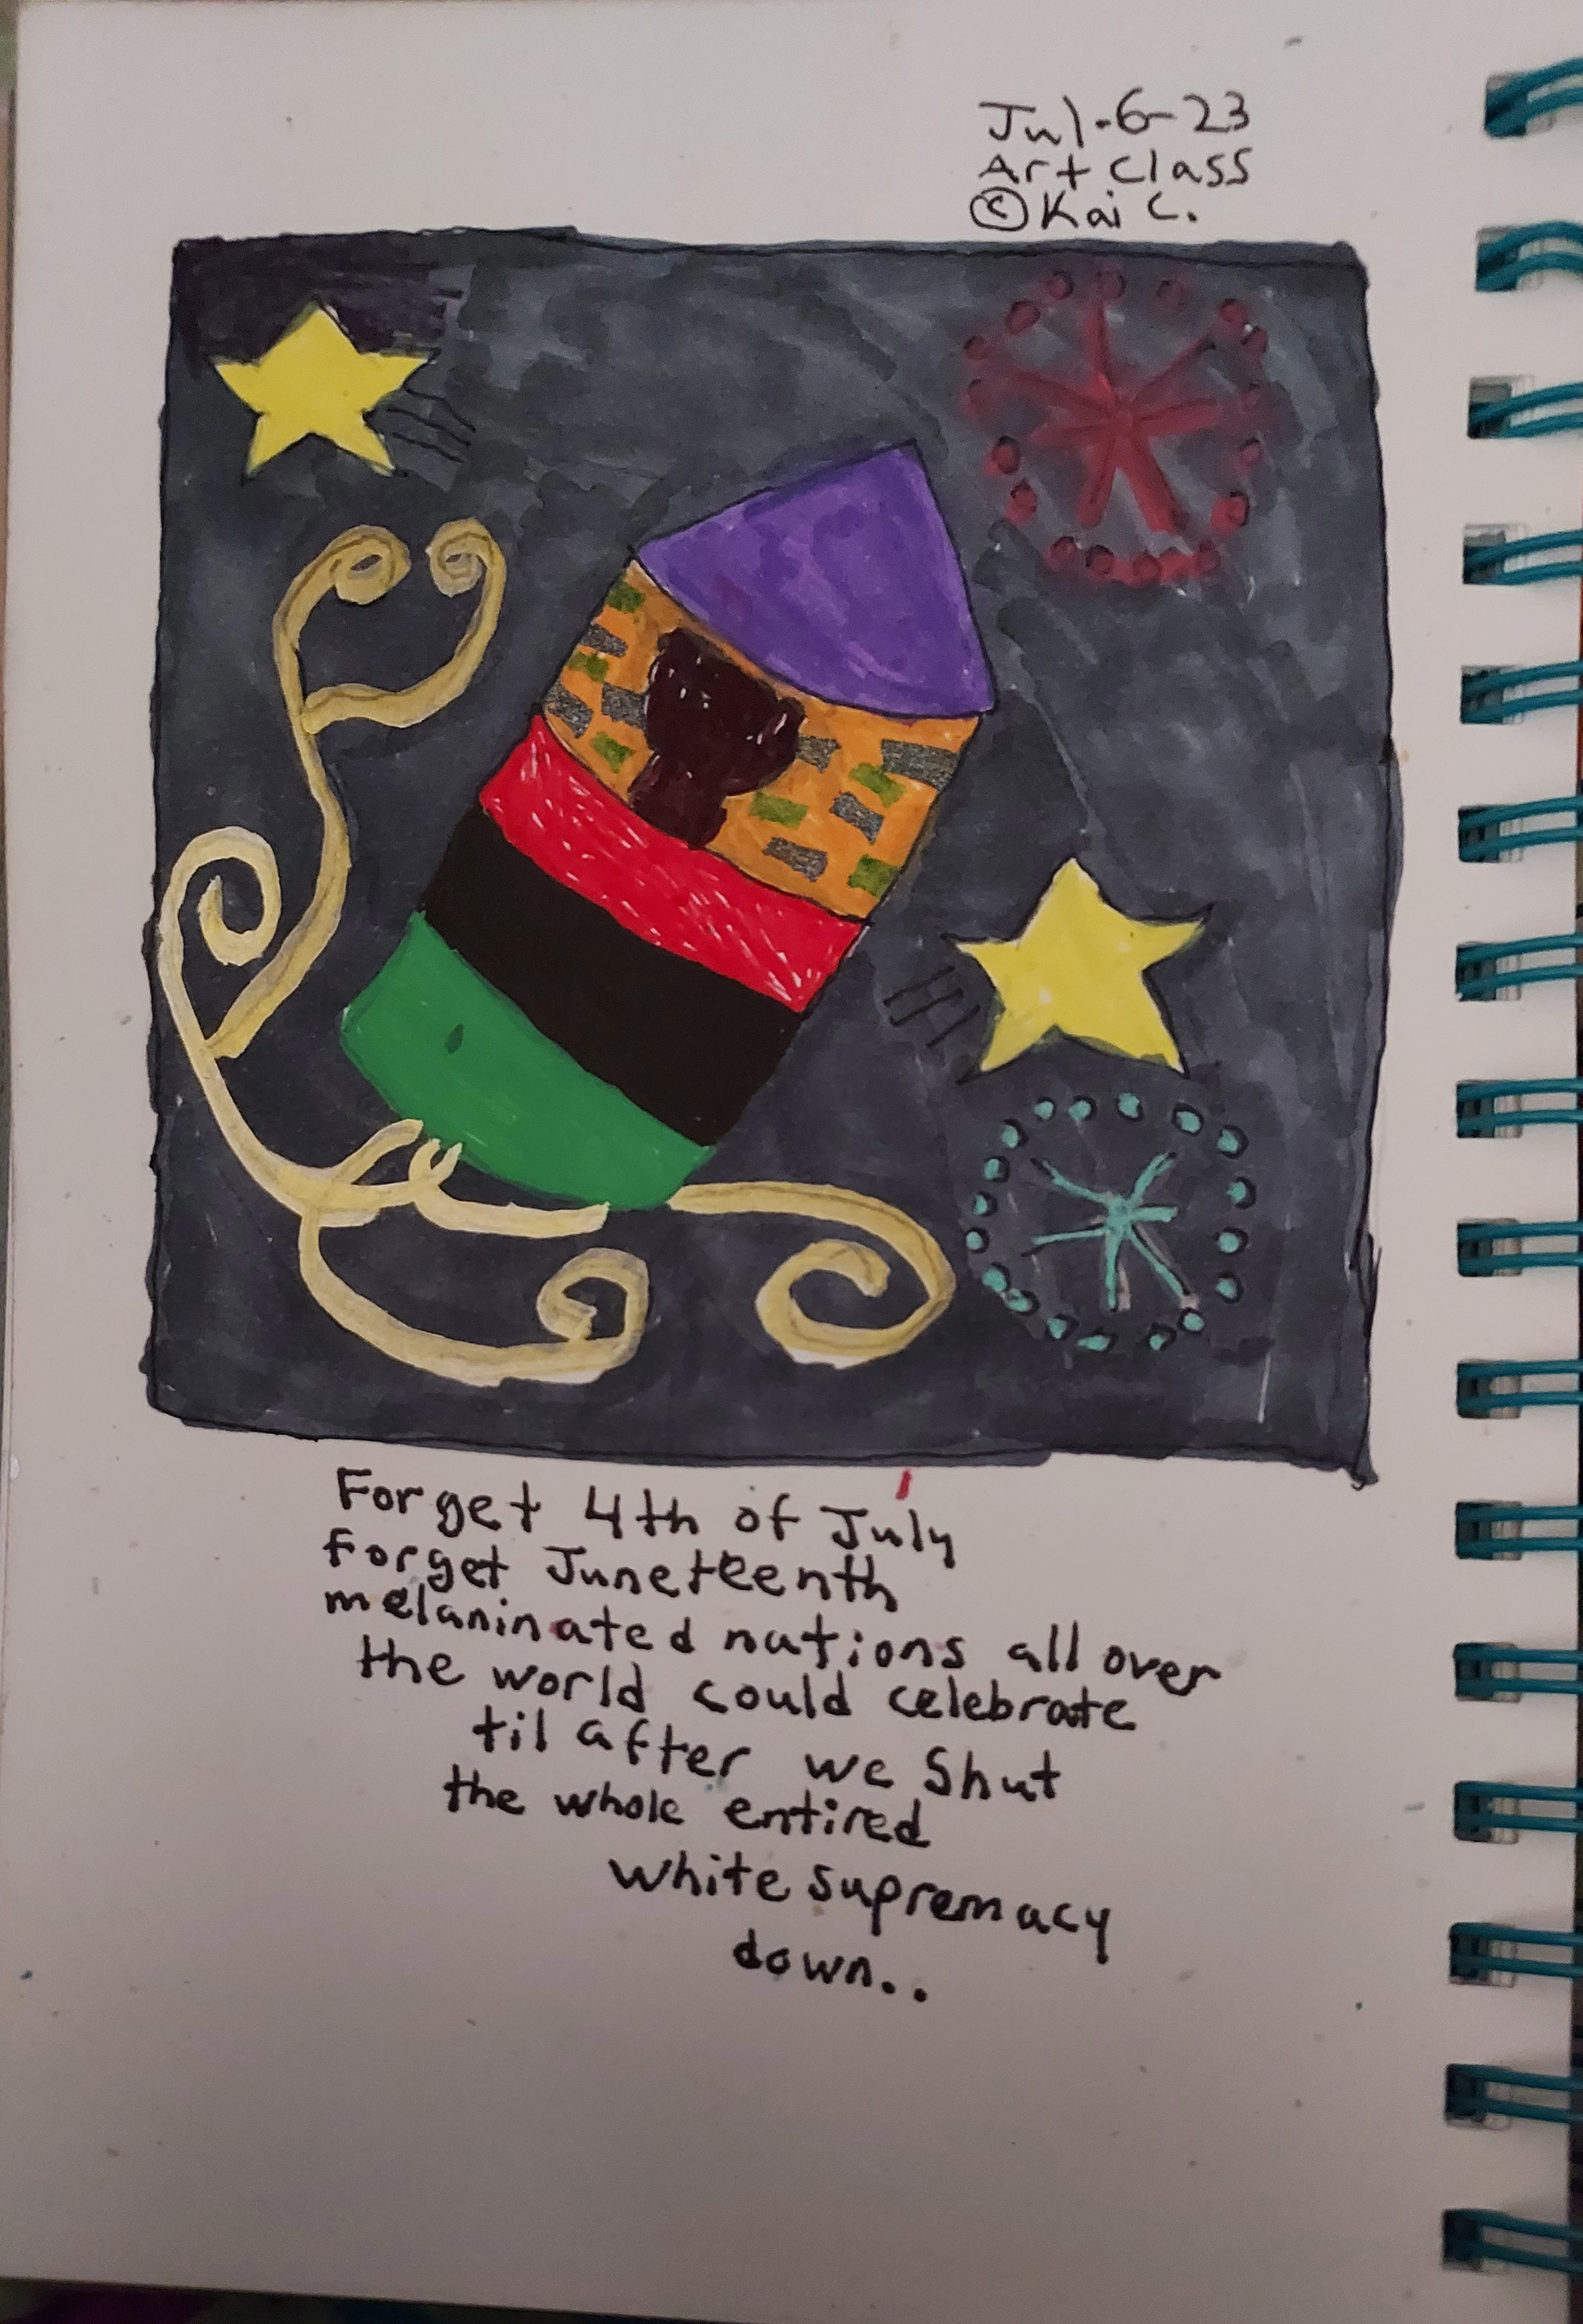 Jul-6-23
Art Class
© Kai C.
Forget 4th of July
Forget Juneteenth
melaninated nations all over
the world could celebrate
til after we Shut
the whole entired
white supremacy
down..